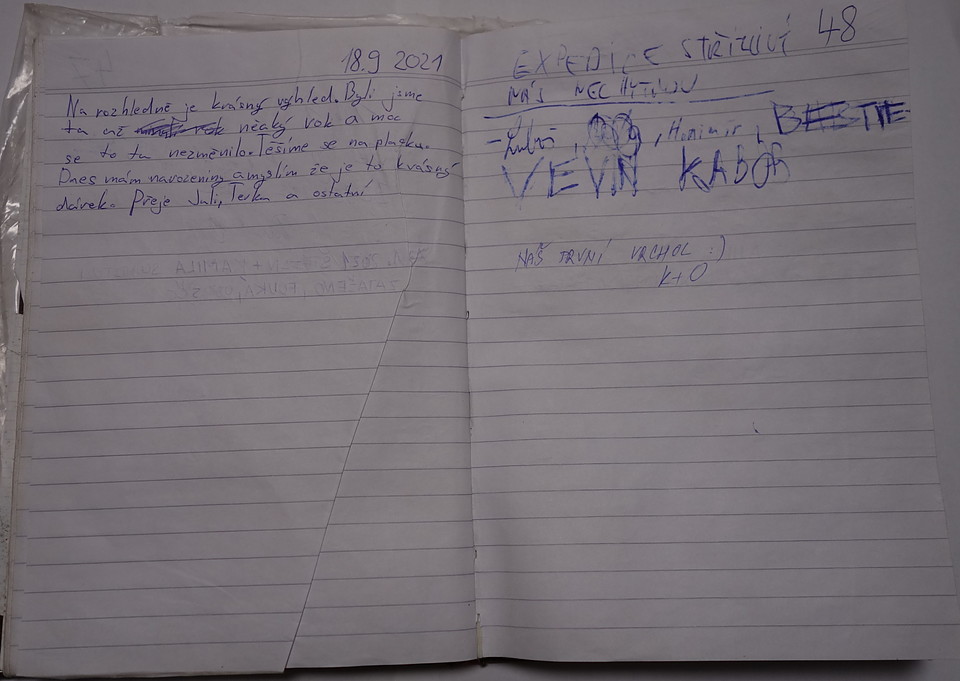 18.9 2021
Na rozhledně je krásný výhled. Byli jsme
tu už rok něaký rok a moc
se to tu nezměnilo. Těšíme se na placku.
Dnes mám narozeniny a myslím že je to krásný
dárek. Přeje Juli, Terka a ostatní
48
EXPEDICE
NÁS NECHYTNOU
- Luboš, , Honimír, BESTIE
VEVIN KABÓR
NAŠ PRVNÍ VRCHOL :)
K+O